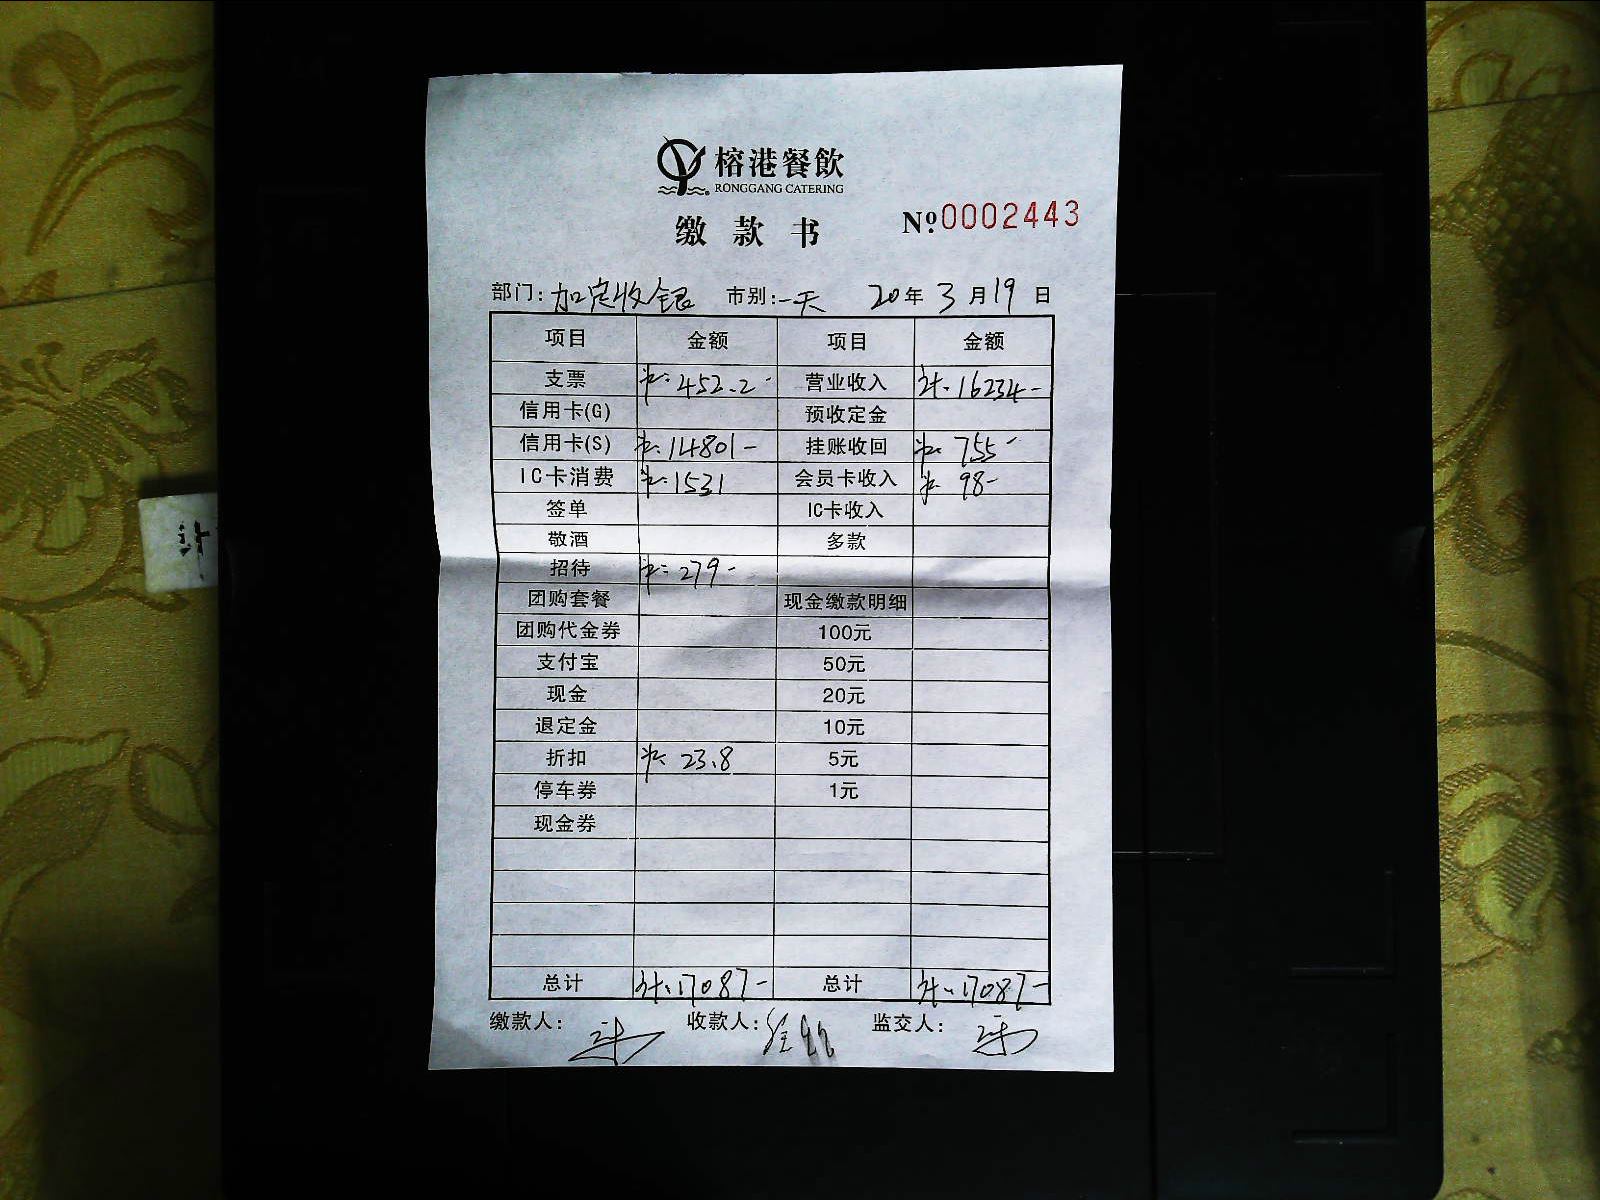 榕港餐飲
RONGGANG CATERING
缴款书 №0002443
部门：加定收银 市别：一天 20年3月19日
项目 金额 项目 金额
支票 452.2 营业收入 计. 16234-
信用卡(G) 预收定金
信用卡(S) 14801- 挂账收回 755-
IC卡消费 1531 会员卡收入 98-
签单 IC卡收入
敬酒 多款
招待 279-
团购套餐 现金缴款明细
团购代金券 100元
支付宝 50元
现金 20元
退定金 10元
折扣 23.8 5元
停车券 1元
现金券
总计 计. 17087- 总计 计. 17087-
缴款人： 收款人： 监交人：